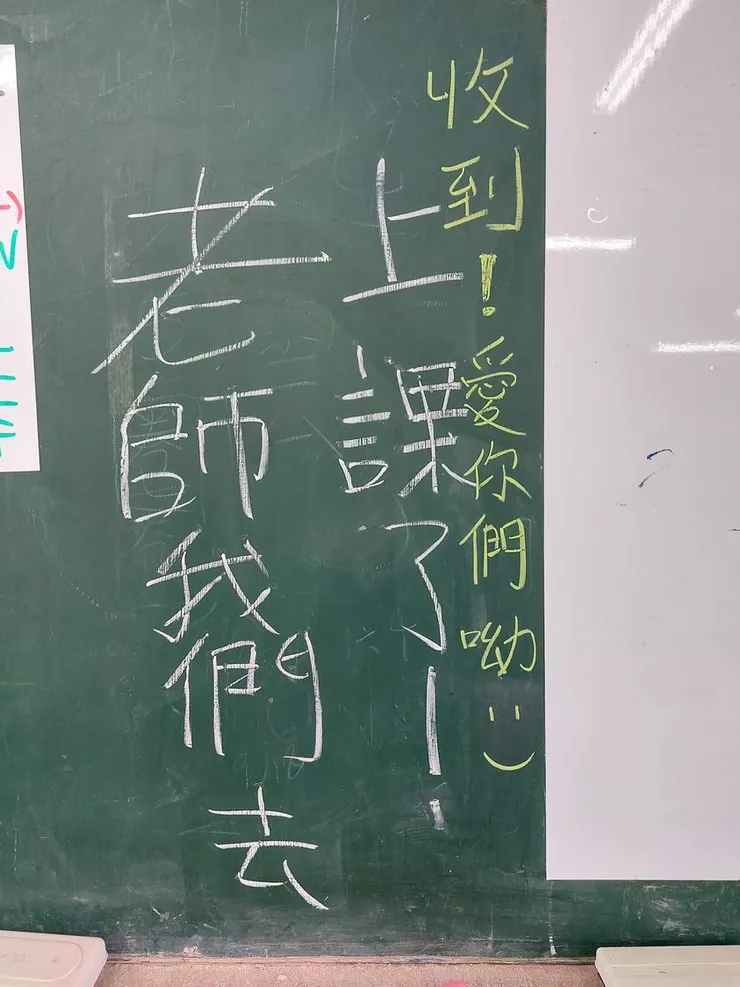 老師我們去
上課了！
收到！愛你們呦:)